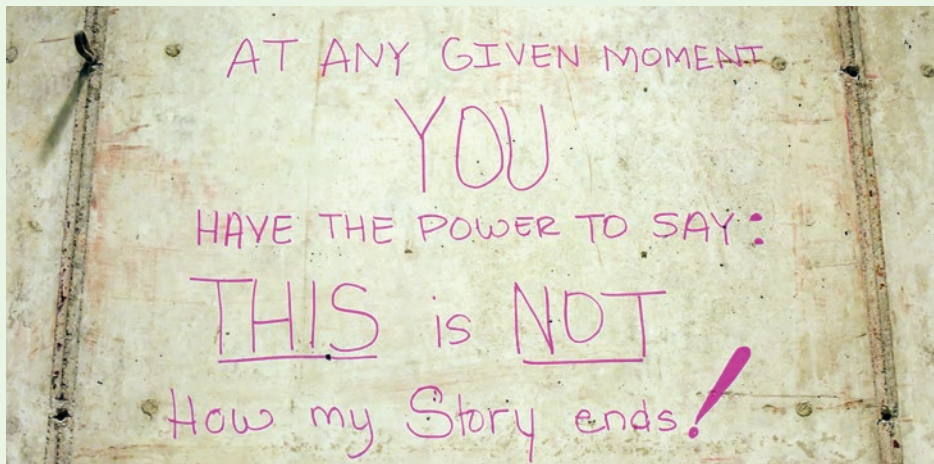 AT ANY GIVEN MOMENT
YOU
HAVE THE POWER TO SAY:
THIS is NOT
How my Story ends!